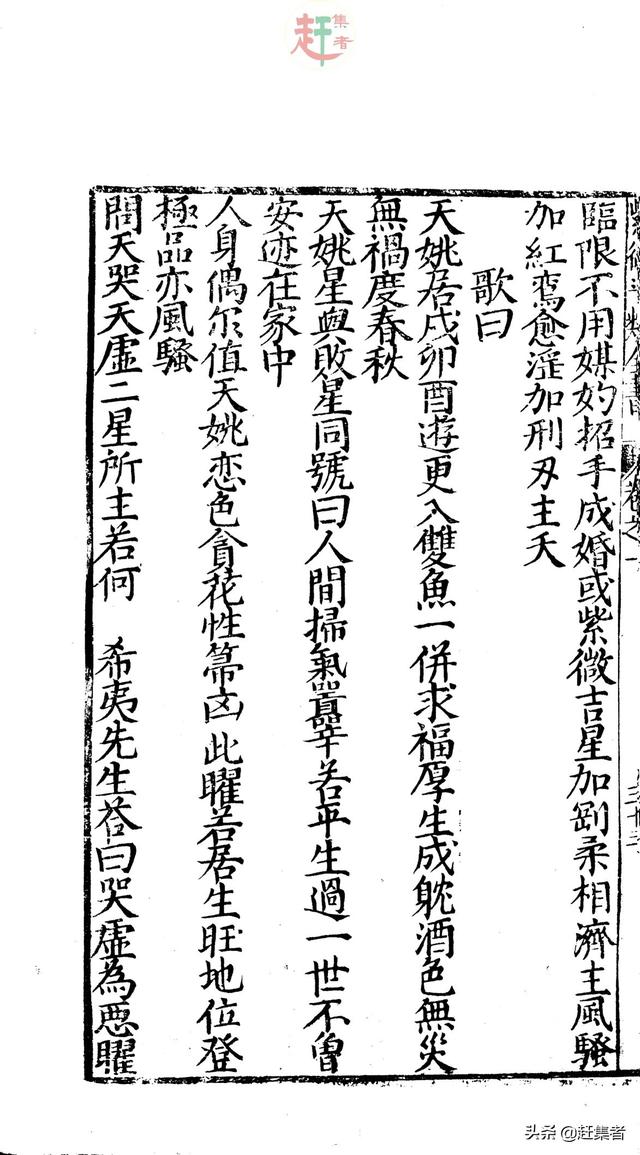 赶集者
臨限不用媒妁招手成婚或紫微吉星加剛柔相濟主風騷
加紅鸞愈滛加刑刃主夭
歌曰
天姚居戌卯酉遊更入雙魚一併求福厚生成躭酒色無災
無禍度春秋
天姚星與敗星同號曰人間掃氣囂辛若平生過一世不曾
安迹在家中
人身偶尔值天姚恋色貪花性帶凶此曜若居生旺地位登
極品亦風騷
問天哭天虛二星所主若何 希夷先生荅曰哭虛為惡曜
头条 @赶集者